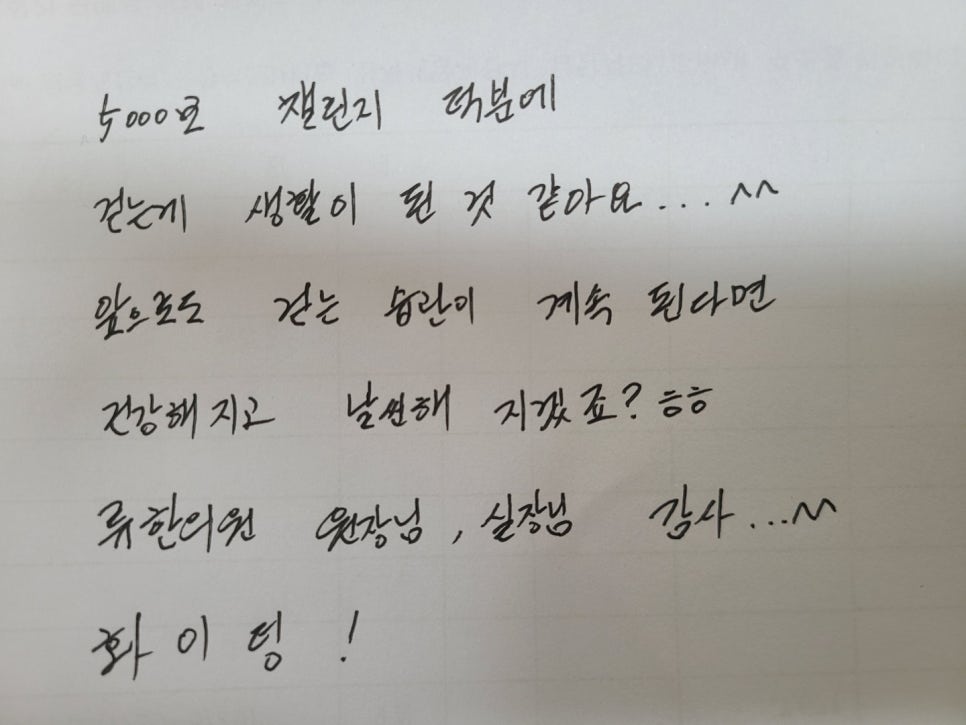 5000보 챌린지 덕분에
걷는게 생활이 된 것 같아요... ^^
앞으로도 걷는 습관이 계속 된다면
건강해 지고 날씬해 지겠죠? ㅎㅎ
류한의원 원장님, 실장님 감사...^^
화이팅!